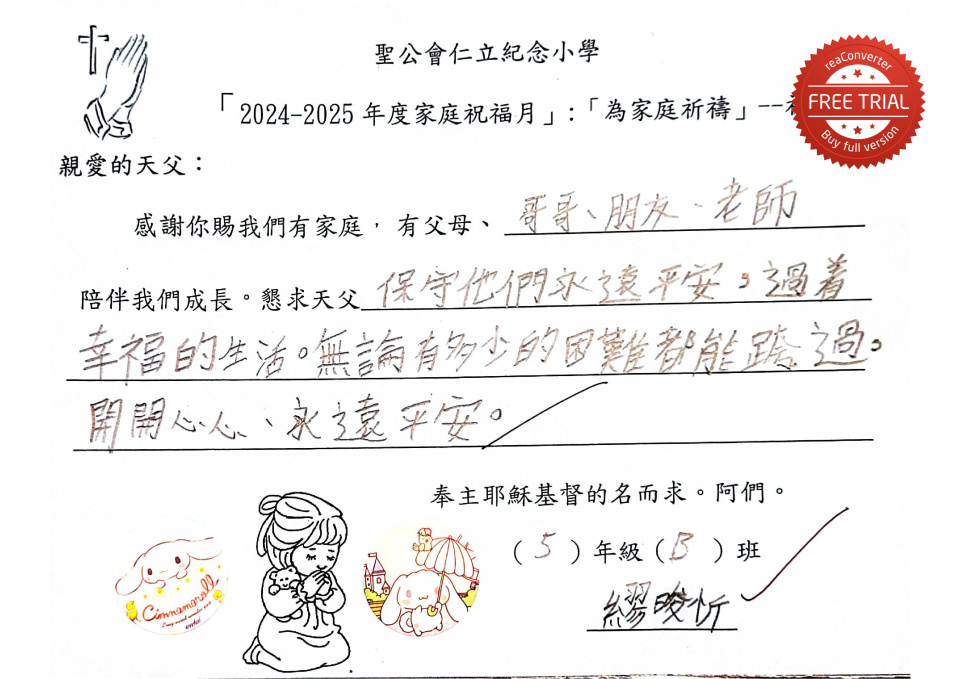 聖公會仁立紀念小學
「2024-2025 年度家庭祝福月」:「為家庭祈禱」--
reaConverter
FREE TRIAL
Buy full version
親愛的天父：
感謝你賜我們有家庭，有父母、哥哥、朋友、老師
陪伴我們成長。懇求天父保守他們永遠平安。過着
幸福的生活。無論有多少的困難都能跨過。
開開心心、永遠平安。
奉主耶穌基督的名而求。阿們。
（5）年級（B）班
繆晙忻
Cinnamoroll